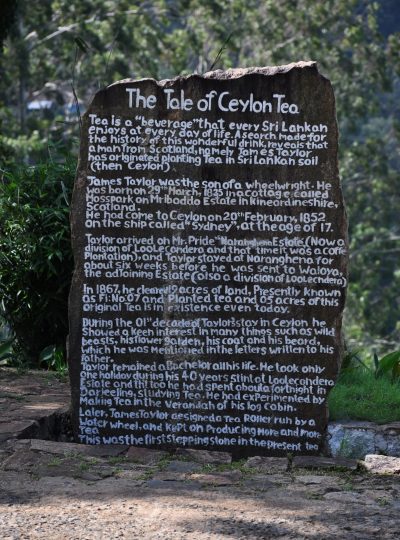 The Tale of Ceylon Tea
Tea is a "beverage" that every Sri Lankan
enjoys at every day of life. A search made for
the history of this wonderful drink, reveals that
a man from Scotland, namely James Taylor
has originated planting Tea in Sri Lankan soil
(then Ceylon)
James Taylor was the son of a wheelwright. He
was born on 29th March, 1835 in a cottage called
Mosspark on Mr. Badda Estate in Kincardineshire,
Scotland.
He had come to Ceylon on 20th February, 1852
on the ship called "Sydney", at the age of 17.
Taylor arrived on Mr. Pride "Naranghena Estate (Now a
division of Loolecondera and that time it was a coffe
Plantation), and Taylor stayed at Naranghena for
about six weeks before he was sent to Waloya,
the adjoining Estate (also a division of Loolecondera)
In 1867, he cleared 19 acres of land, Presently known
as Fi: No. 07 and Planted tea and 05 acres of this
original Tea is in existence even today.
During the 01st decade of Taylor's stay in Ceylon he
Showed a keen interest in many things such as wild
beasts, his flower garden, his coat and his beard,
which he was mentioned in the letters written to his
Father.
Taylor remained a Bachelor all his life. He took only
One holiday during his 40 years stint at Loolecondera
Estate and thi too he had spent aboula fortnight in
Darjeeling, studying Tea. He had experimented by
Making Tea in the Verandah of his log Cabin.
Laler, James Taylor designed a Tea Roller run by a
Water wheel, and kept on Producing More and more
Tea
This was the first stepping stone in the present tea